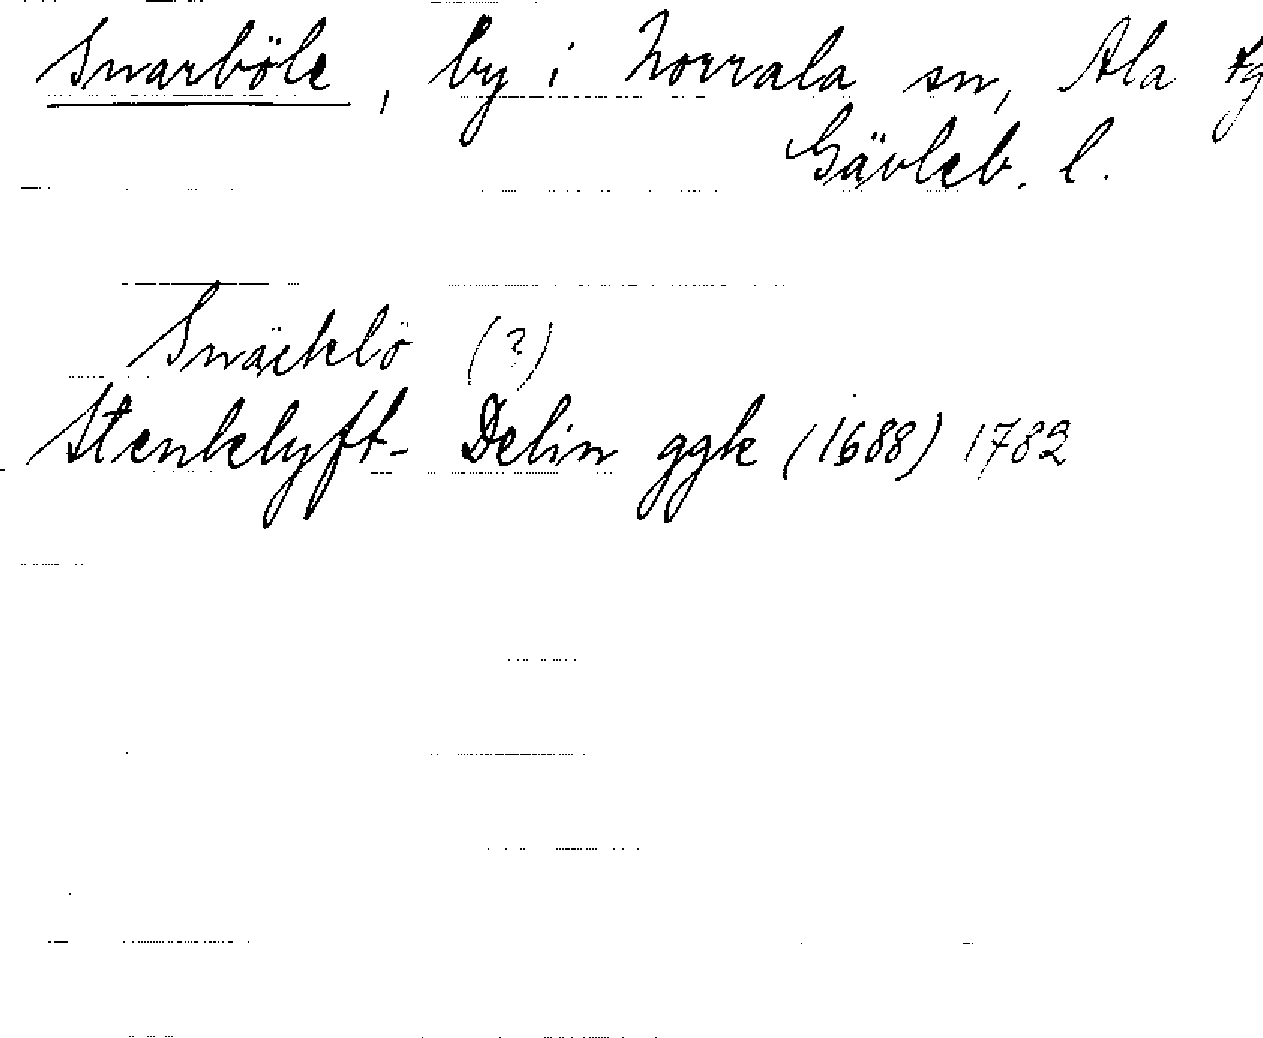 Snarböle, by i Norrala sn, Ala tg
Gävleb. l.
Snäcklö (?)
Stenklyft- Delin ggk (1688) 1782